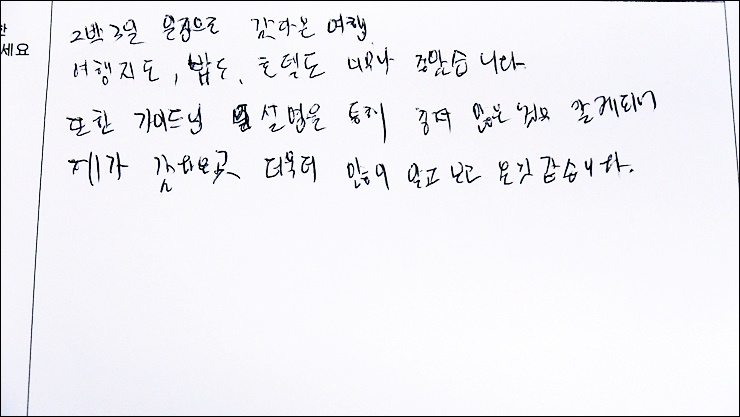 한
세요
2박 3일 일정으로 갔다온 여행
여행지도, 밥도, 호텔도 너무나 좋았습니다.
또한 가이드님 설명을 통해 많은 알게되어
제가 더욱더 많이 알고 보고 온것 같습니다.